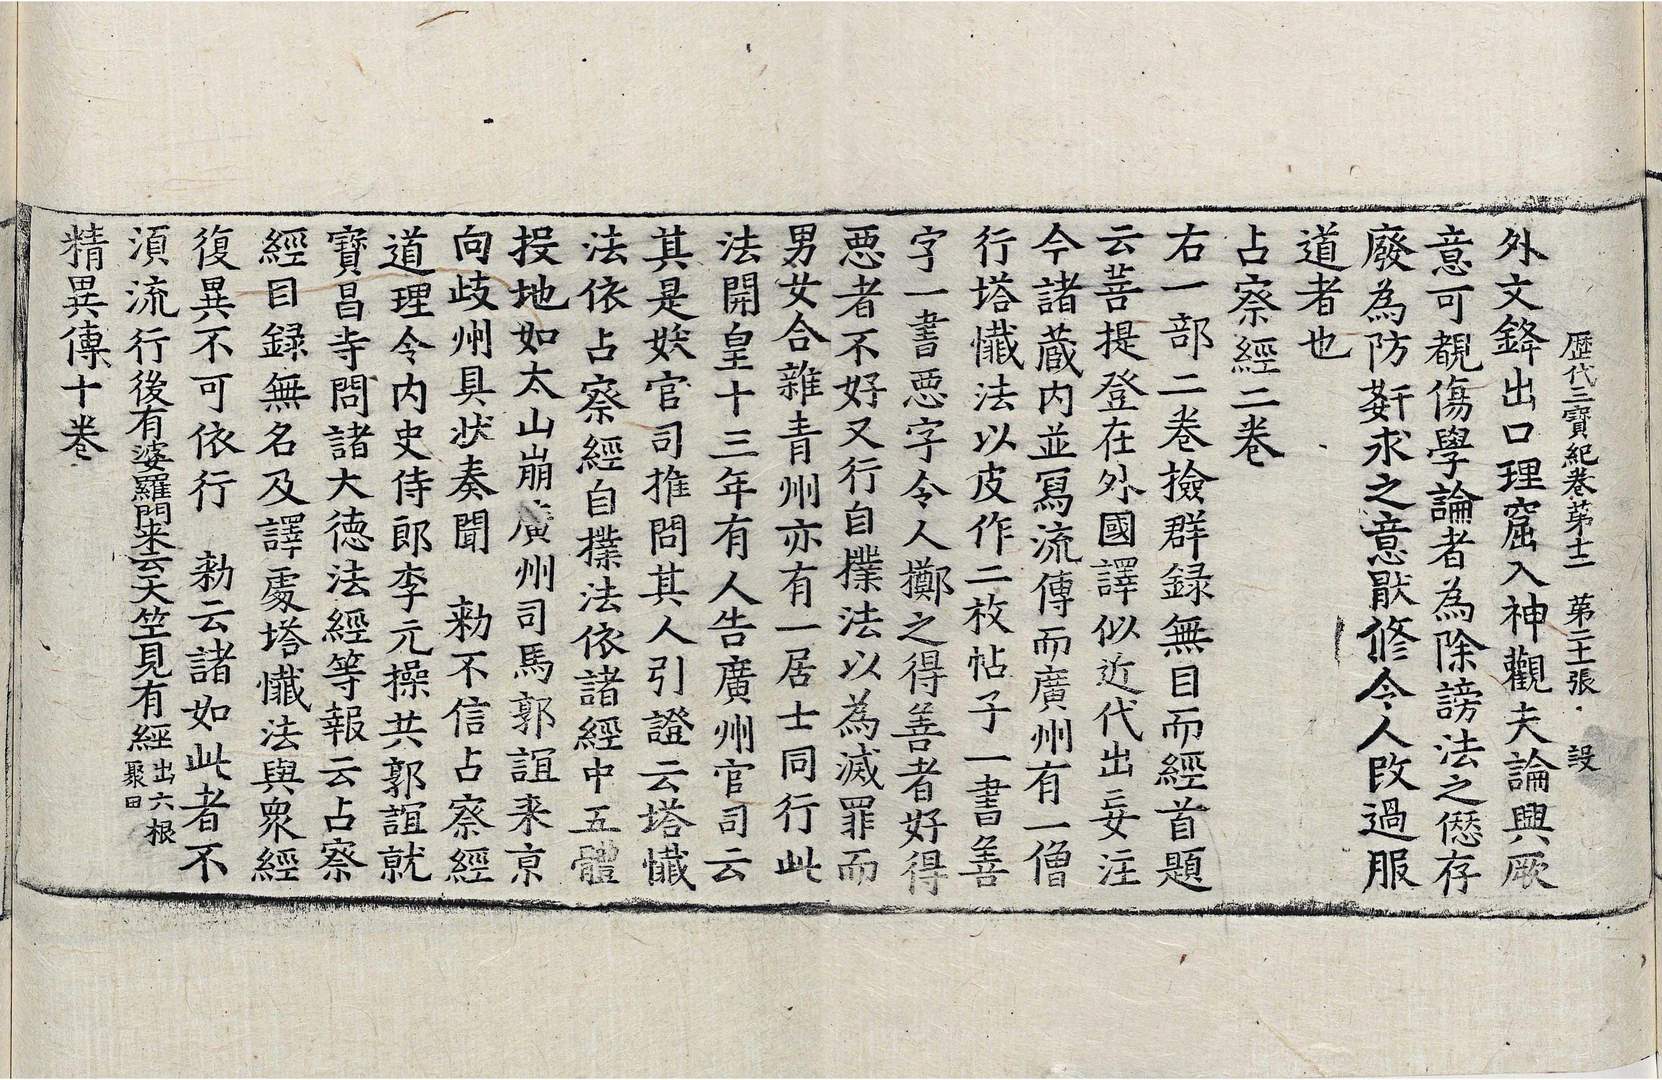 歷代三寶紀卷第十二　第二十張　設
外文鋒出口理窟入神觀夫論興厥
意可覩傷學論者為除謗法之愆存
廢為防姧求之意厭修令人改過服
道者也
占察經二卷
右一部二卷撿群録無目而經首題
云菩提登在外國譯似近代出妄注
今諸蔵内並寫流傳而廣州有一僧
行塔懺法以皮作二枚帖子一書善
字一書惡字令人擲之得善者好得
惡者不好又行自撲法以為滅罪而
男女合雜青州亦有一居士同行此
法開皇十三年有人告廣州官司云
其是妖官司推問其人引證云塔懺
法依占察經自撲法依諸經中五體
投地如太山崩廣州司馬郭誼来京
向歧州具狀奏聞　勑不信占察經
道理令内史侍郎李元操共郭誼就
寶昌寺問諸大德法經等報云占察
經目録無名及譯處塔懺法與衆經
復異不可依行　勑云諸如此者不
須流行後有婆羅門来云天竺見有經出六根聚曰
精異傳十卷